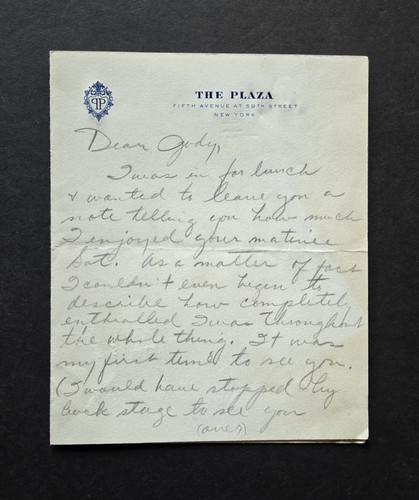 THE PLAZA
FIFTH AVENUE AT 59TH STREET
NEW YORK
Dear Judy,
I was in for lunch
& wanted to leave you a
note telling you how much
I enjoyed your matinee
Sat. As a matter of fact
I couldn't even begin to
describe how completely
enthralled I was throughout
the whole thing. It was
my first time to see you.
(I would have stopped by
back stage to see you
(over)